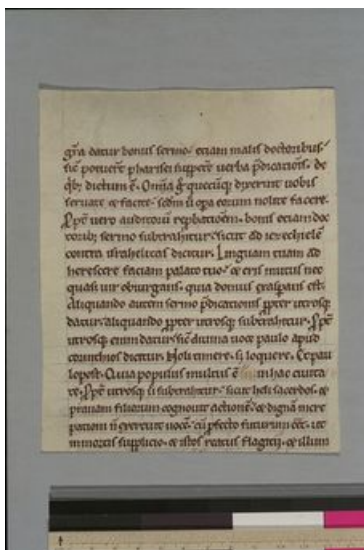 gr̃a datur bonus sermo. etiam malis doctoribus.
sic potuerẽ pharisei suppetere verba p̃dicationis. de
qb; dictum ẽ. Om̃ia q̃ quecũq; dixerint uobis
seruate et facite. scdm ũ opera eorum nolite facere.
Ppẽ vero auditorũ rep̃bationem. bonis etiam doc
torib; sermo subtrahitur. sicut ad iezechielẽ
contra israheliticas dicitur. Linguam tuam ad
herescere faciam palato tuo. et eris mutus nec
quasi uir obiurgans. quia domus exasperans est.
Aliquando autem sermo p̃dicationis ppter utrosq;
datur. aliquando ppter utrosq; subtrahitur. Ppẽ
utrosq; enim datur. sic̃ diuina uoce paulo apud
corinthios dicitur. Noli timere. s; loquere. Et pau
lo post. Quia populus multus ẽ in hac ciuita
te. Ppẽ utrosq; ũ subtrahitur. sicut heli sacerdos. et
prauam filiorum cognouit actionẽ. et dignã incre
pationi ñ exercuit uocẽ. cũ p̃fecto futurum eẽt. ut
in mortis supplicio. et istos reatus flagitii. et illum